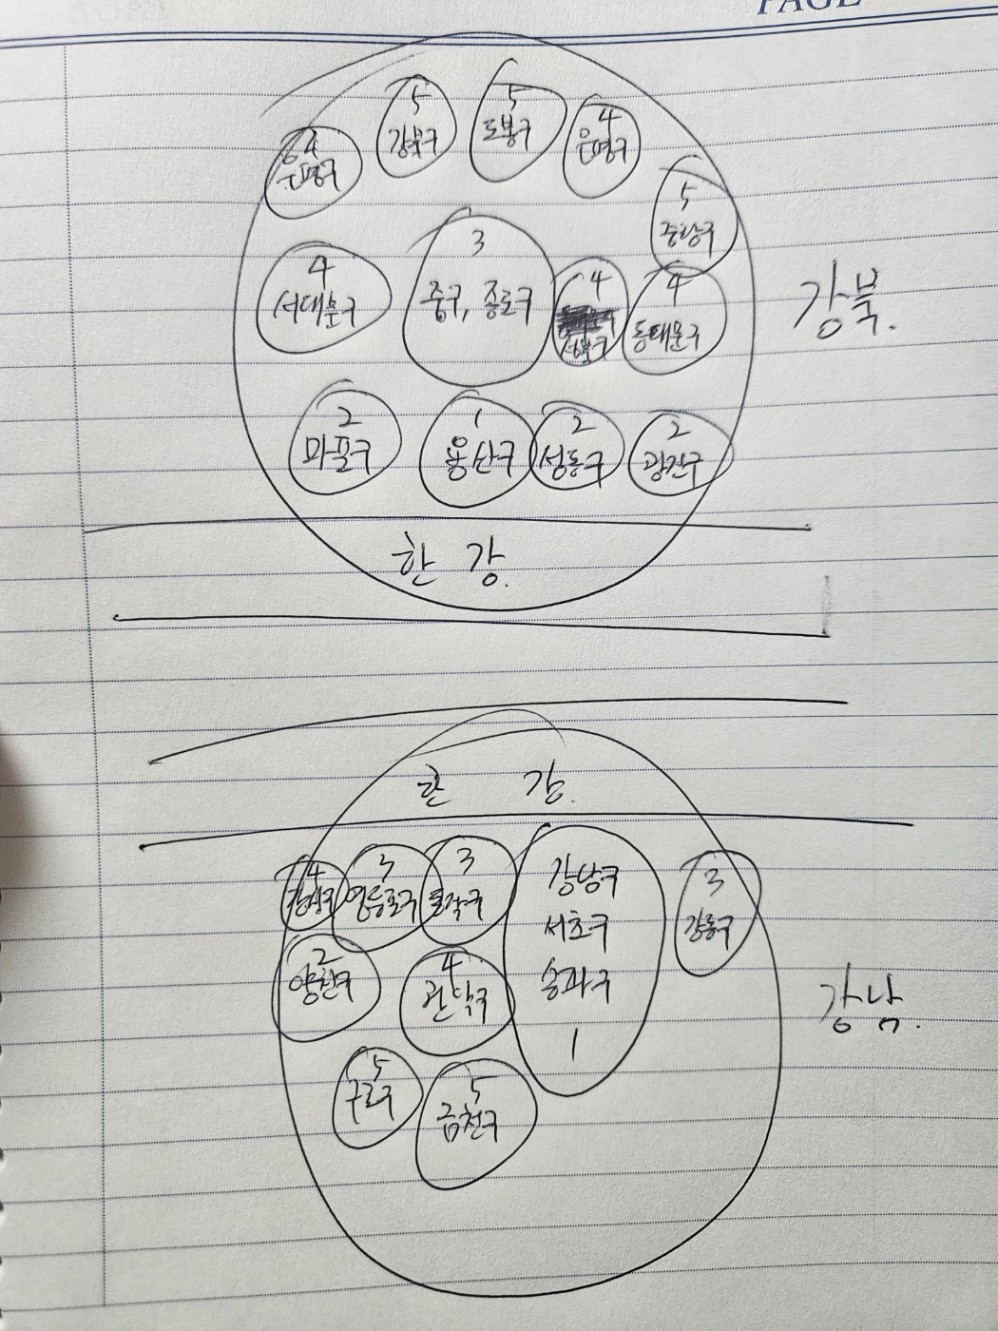 PAGE
5
강북구
5
도봉구
4
은평구
4
은평구
5
중랑구
4
서대문구
3
중구, 종로구
4
성북구
4
동대문구
강북.
2
마포구
1
용산구
2
성동구
2
광진구
한 강.
한 강.
4
강서구
3
영등포구
3
동작구
강남구
서초구
송파구
1
3
강동구
2
양천구
4
관악구
강남.
5
구로구
5
금천구